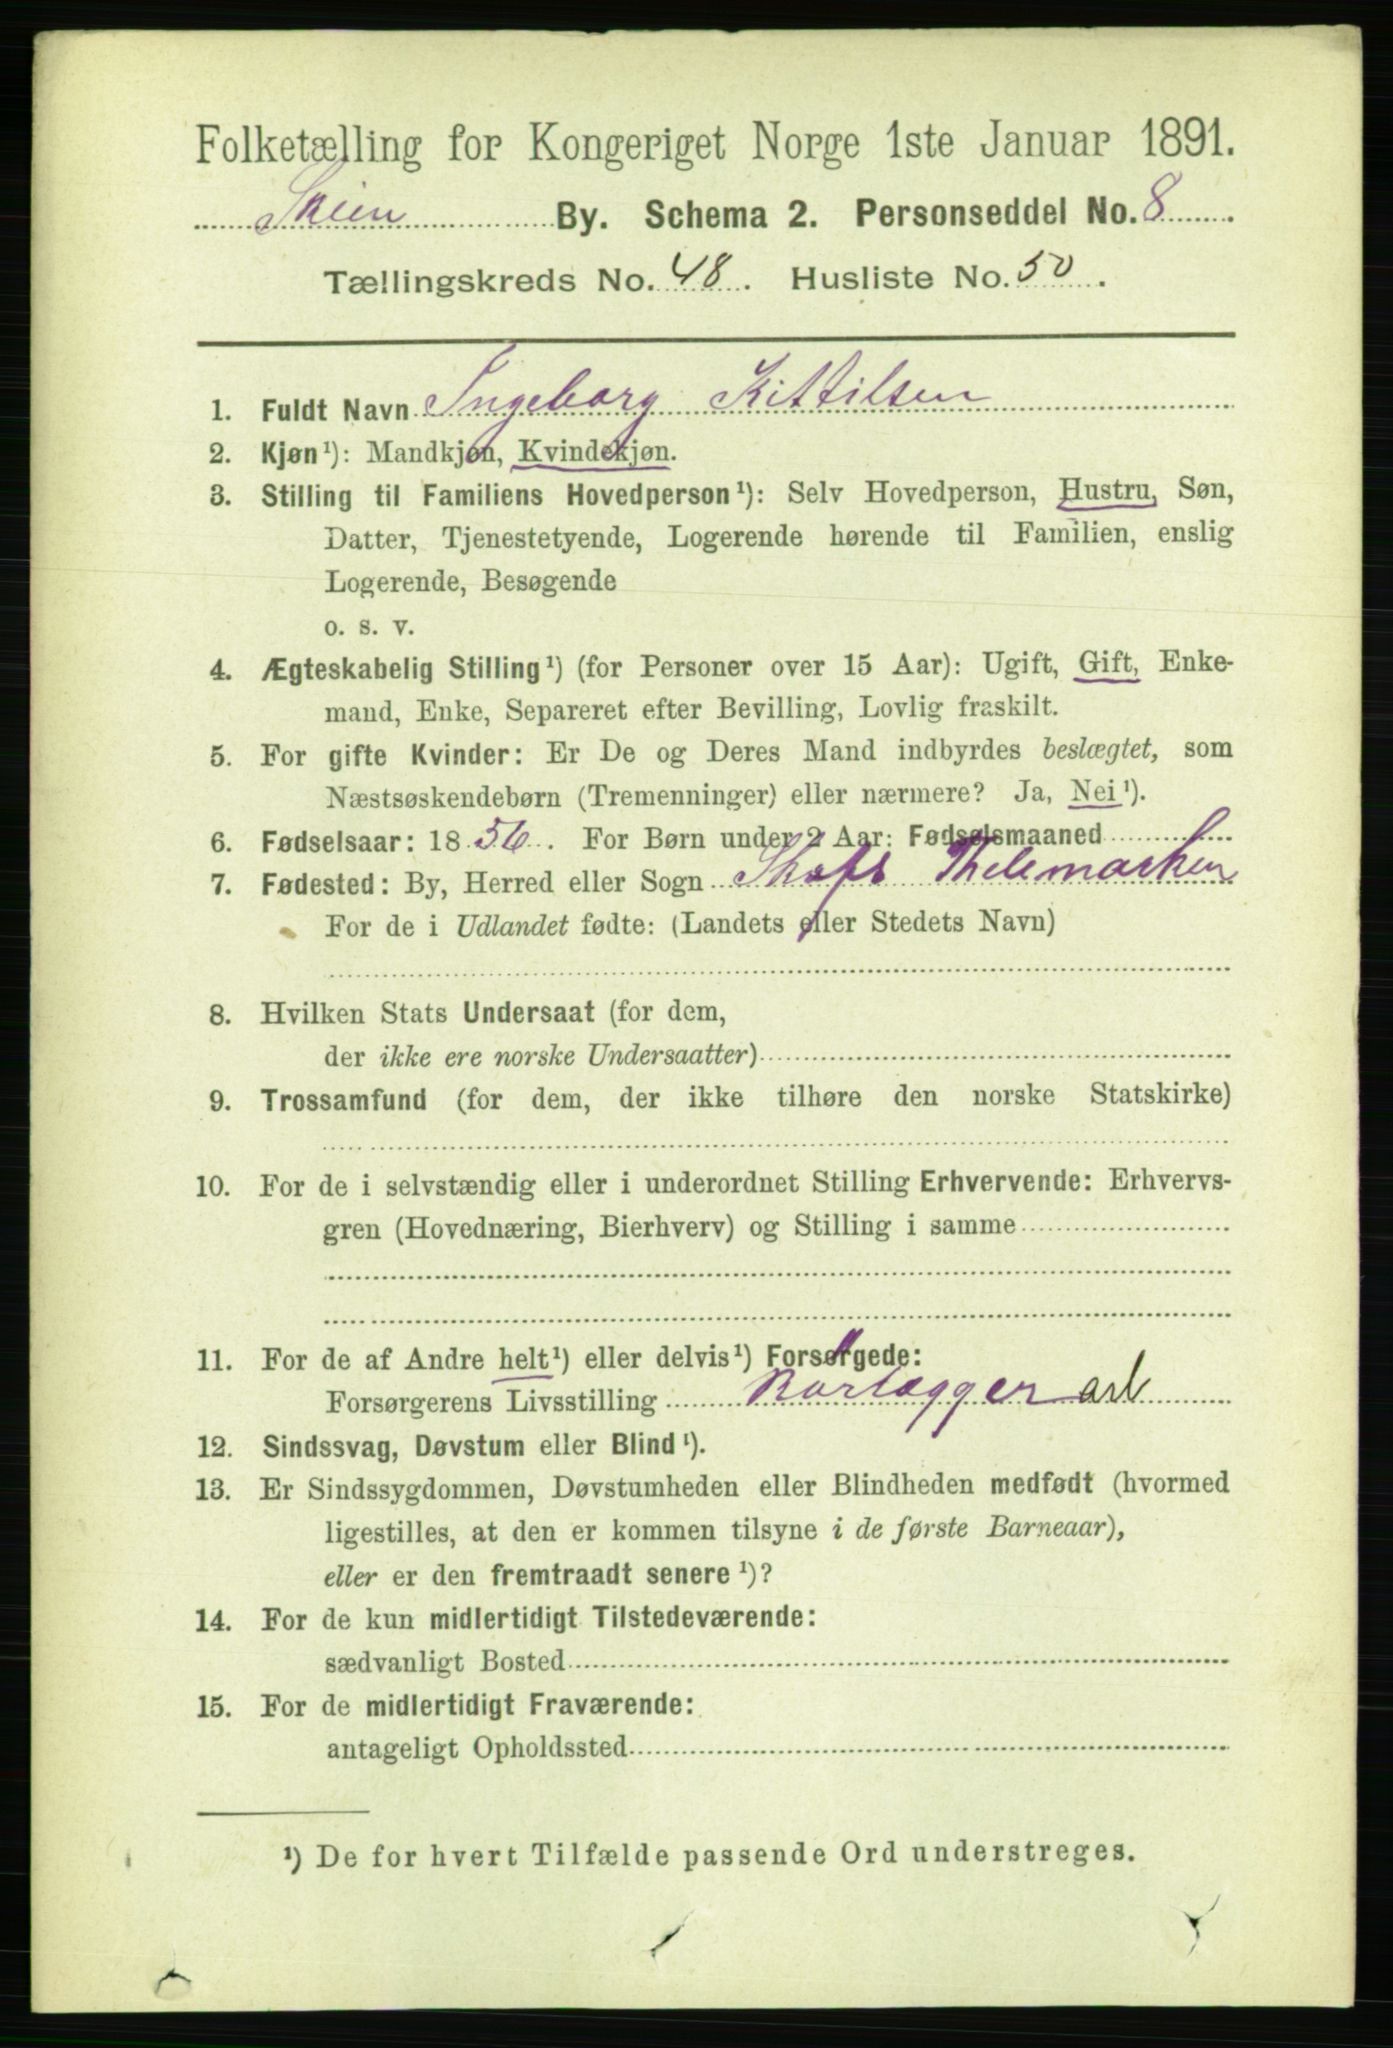 Folketælling for Kongeriget Norge 1ste Januar 1891.
Skien By. Schema 2. Personseddel No. 8.
Tællingskreds No. 48. Husliste No. 50.
1. Fuldt Navn Ingeborg Kittilsen
2. Kjøn¹): Mandkjøn, Kvindekjøn.
3. Stilling til Familiens Hovedperson¹): Selv Hovedperson, Hustru, Søn,
Datter, Tjenestetyende, Logerende hørende til Familien, enslig
Logerende, Besøgende
o. s. v.
4. Ægteskabelig Stilling¹) (for Personer over 15 Aar): Ugift, Gift, Enke-
mand, Enke, Separeret efter Bevilling, Lovlig fraskilt.
5. For gifte Kvinder: Er De og Deres Mand indbyrdes beslægtet, som
Næstsøskendebørn (Tremenninger) eller nærmere? Ja, Nei¹).
6. Fødselsaar: 1856. For Børn under 2 Aar: Fødselsmaaned
7. Fødested: By, Herred eller Sogn Thelemarken
For de i Udlandet fødte: (Landets eller Stedets Navn)
8. Hvilken Stats Undersaat (for dem,
der ikke ere norske Undersaatter)
9. Trossamfund (for dem, der ikke tilhøre den norske Statskirke)
10. For de i selvstændig eller i underordnet Stilling Erhvervende: Erhvervs-
gren (Hovednæring, Bierhverv) og Stilling i samme
11. For de af Andre helt¹) eller delvis¹) Forsørgede:
Forsørgerens Livsstilling Rørlægger arb
12. Sindssvag, Døvstum eller Blind¹).
13. Er Sindssygdommen, Døvstumheden eller Blindheden medfødt (hvormed
ligestilles, at den er kommen tilsyne i de første Barneaar),
eller er den fremtraadt senere¹)?
14. For de kun midlertidigt Tilstedeværende:
sædvanligt Bosted
15. For de midlertidigt Fraværende:
antageligt Opholdssted
¹) De for hvert Tilfælde passende Ord understreges.